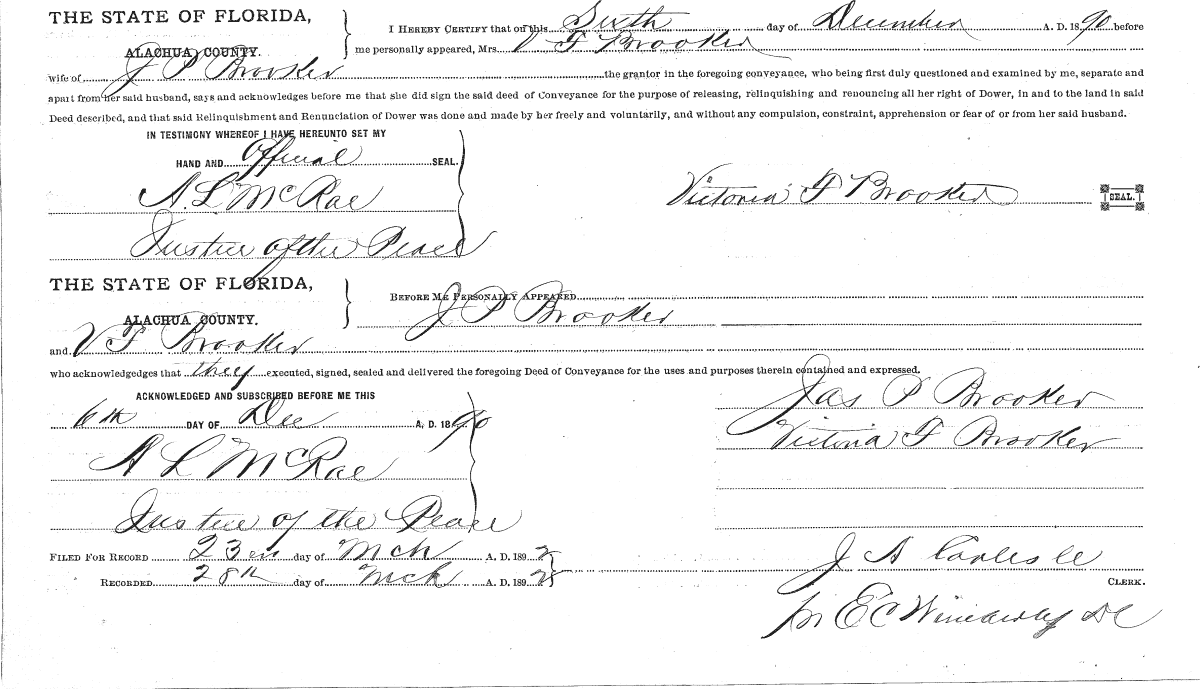 THE STATE OF FLORIDA,
ALACHUA COUNTY.
I HEREBY CERTIFY that on this Sixth day of December A. D. 1890 before
me personally appeared, Mrs. V F Brooker
wife of J P Brooker the grantor in the foregoing conveyance, who being first duly questioned and examined by me, separate and
apart from her said husband, says and acknowledges before me that she did sign the said deed of Conveyance for the purpose of releasing, relinquishing and renouncing all her right of Dower, in and to the land in said
Deed described, and that said Relinquishment and Renunciation of Dower was done and made by her freely and voluntarily, and without any compulsion, constraint, apprehension or fear of or from her said husband.
IN TESTIMONY WHEREOF I HAVE HEREUNTO SET MY
HAND AND Official SEAL.
A. L McRae
Victoria F Brooker SEAL.
Justice of the Peace
THE STATE OF FLORIDA,
ALACHUA COUNTY.
BEFORE ME PERSONALLY APPEARED
J P Brooker
and V F Brooker
who acknowledgedges that they executed, signed, sealed and delivered the foregoing Deed of Conveyance for the uses and purposes therein contained and expressed.
ACKNOWLEDGED AND SUBSCRIBED BEFORE ME THIS
6th DAY OF Dec A. D. 1890
Jas P Brooker
Victoria F Brooker
A L McRae
Justice of the Peace
FILED FOR RECORD 23 day of Mch A. D. 1892
J A Carlisle
RECORDED 28th day of Mch A. D. 1892
CLERK.
E C Wimberly DC